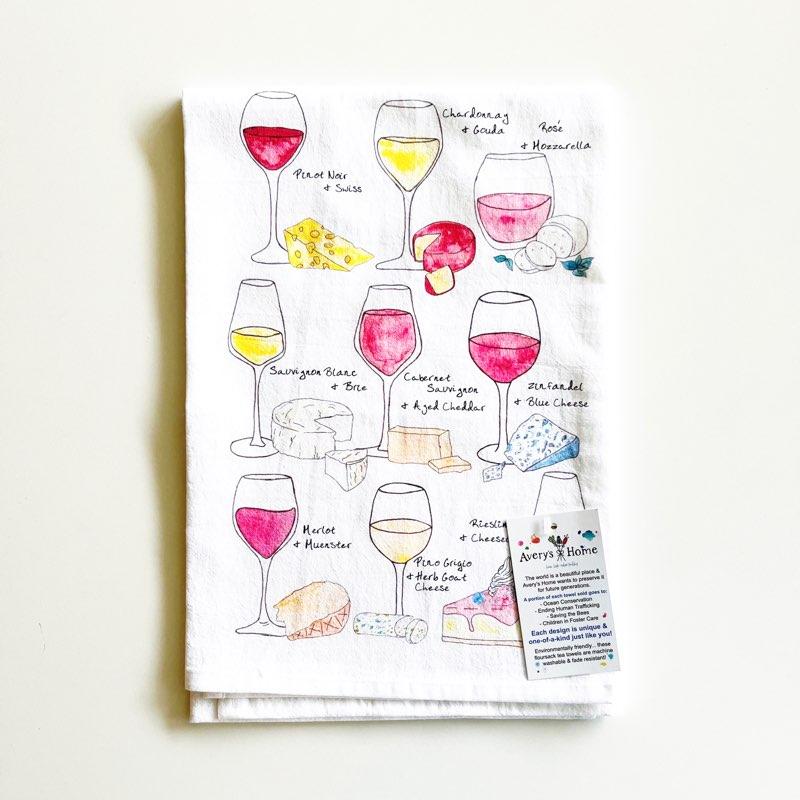 Pinot Noir
& Swiss
Chardonnay
& Gouda
Rosé
& Mozzarella
Sauvignon Blanc
& Brie
Cabernet
Sauvignon
& Aged Cheddar
Zinfandel
& Blue Cheese
Merlot
& Muenster
Pino Grigio
& Herb Goat
Cheese
Rieslin
& Cheese
Avery's Home
The world is a beautiful place &
Avery's Home wants to preserve it
for future generations.
A portion of each towel sold goes to:
- Ocean Conservation
- Ending Human Trafficking
- Saving the Bees
- Children in Foster Care
Each design is unique &
one-of-a-kind just like you!
Environmentally friendly... these
floursack tea towels are machine
washable & fade resistant!